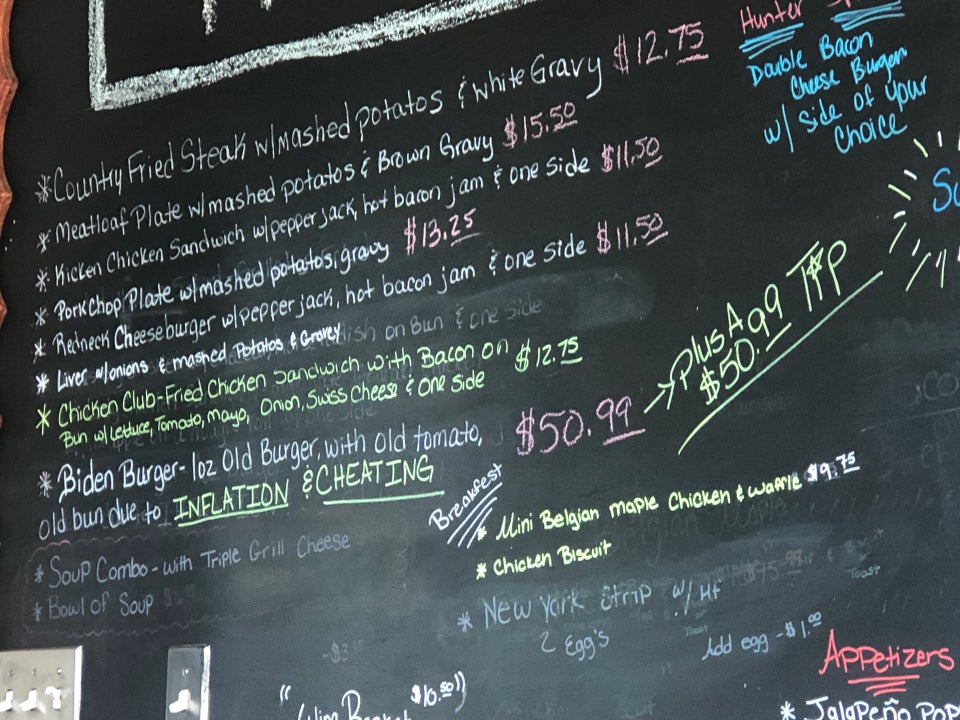 *Country Fried Steak w/mashed potatos & white Gravy $12.75
* Meatloaf Plate w/mashed potatos & Brown Gravy $15.50
* Kicken Chicken Sandwich w/pepper jack, hot bacon jam & one side $11.50
* Pork Chop Plate w/mashed potatos, gravy $13.25
* Redneck Cheeseburger w/pepper jack, hot bacon jam & one side $11.50
* Liver w/onions & mashed Potatos & Gravey
on Bun & one side
* Chicken Club-Fried Chicken Sandwich with Bacon on $12.75
Bun w/ Lettuce, Tomato, Mayo, Onion, Swiss Cheese & One Side
* Biden Burger- 1oz Old Burger, with old tomato, $50.99
old bun due to INFLATION & CHEATING
→ Plus A 99 TIP
$50.99
* Soup Combo - with Triple Grill Cheese
* Bowl of Soup
Hunter
Double Bacon
Cheese Burger
w/ side of your
Choice
Breakfest
* Mini Belgian maple Chicken & Waffle $9.75
* Chicken Biscuit
* New York Strip w/
2 Egg's
Toast
Add egg - $1.00
Appetizers
* Jalapeño Pop
$10.50